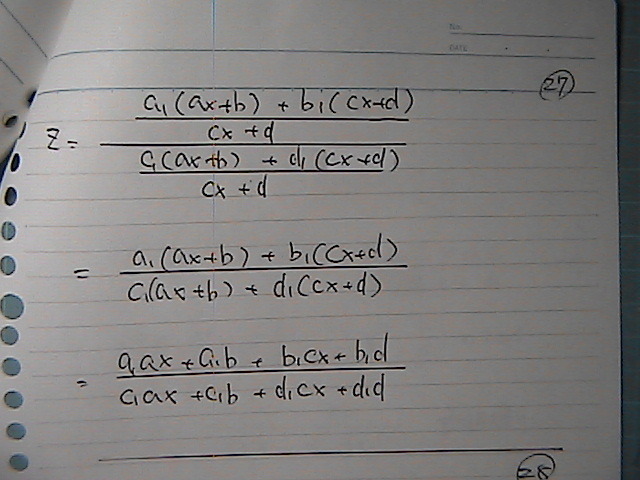 No.
DATE
27
z = ((a₁(ax+b) + b₁(cx+d))/(cx+d)) / ((c₁(ax+b) + d₁(cx+d))/(cx+d))
= (a₁(ax+b) + b₁(cx+d)) / (c₁(ax+b) + d₁(cx+d))
= (a₁ax + a₁b + b₁cx + b₁d) / (c₁ax + c₁b + d₁cx + d₁d)
28